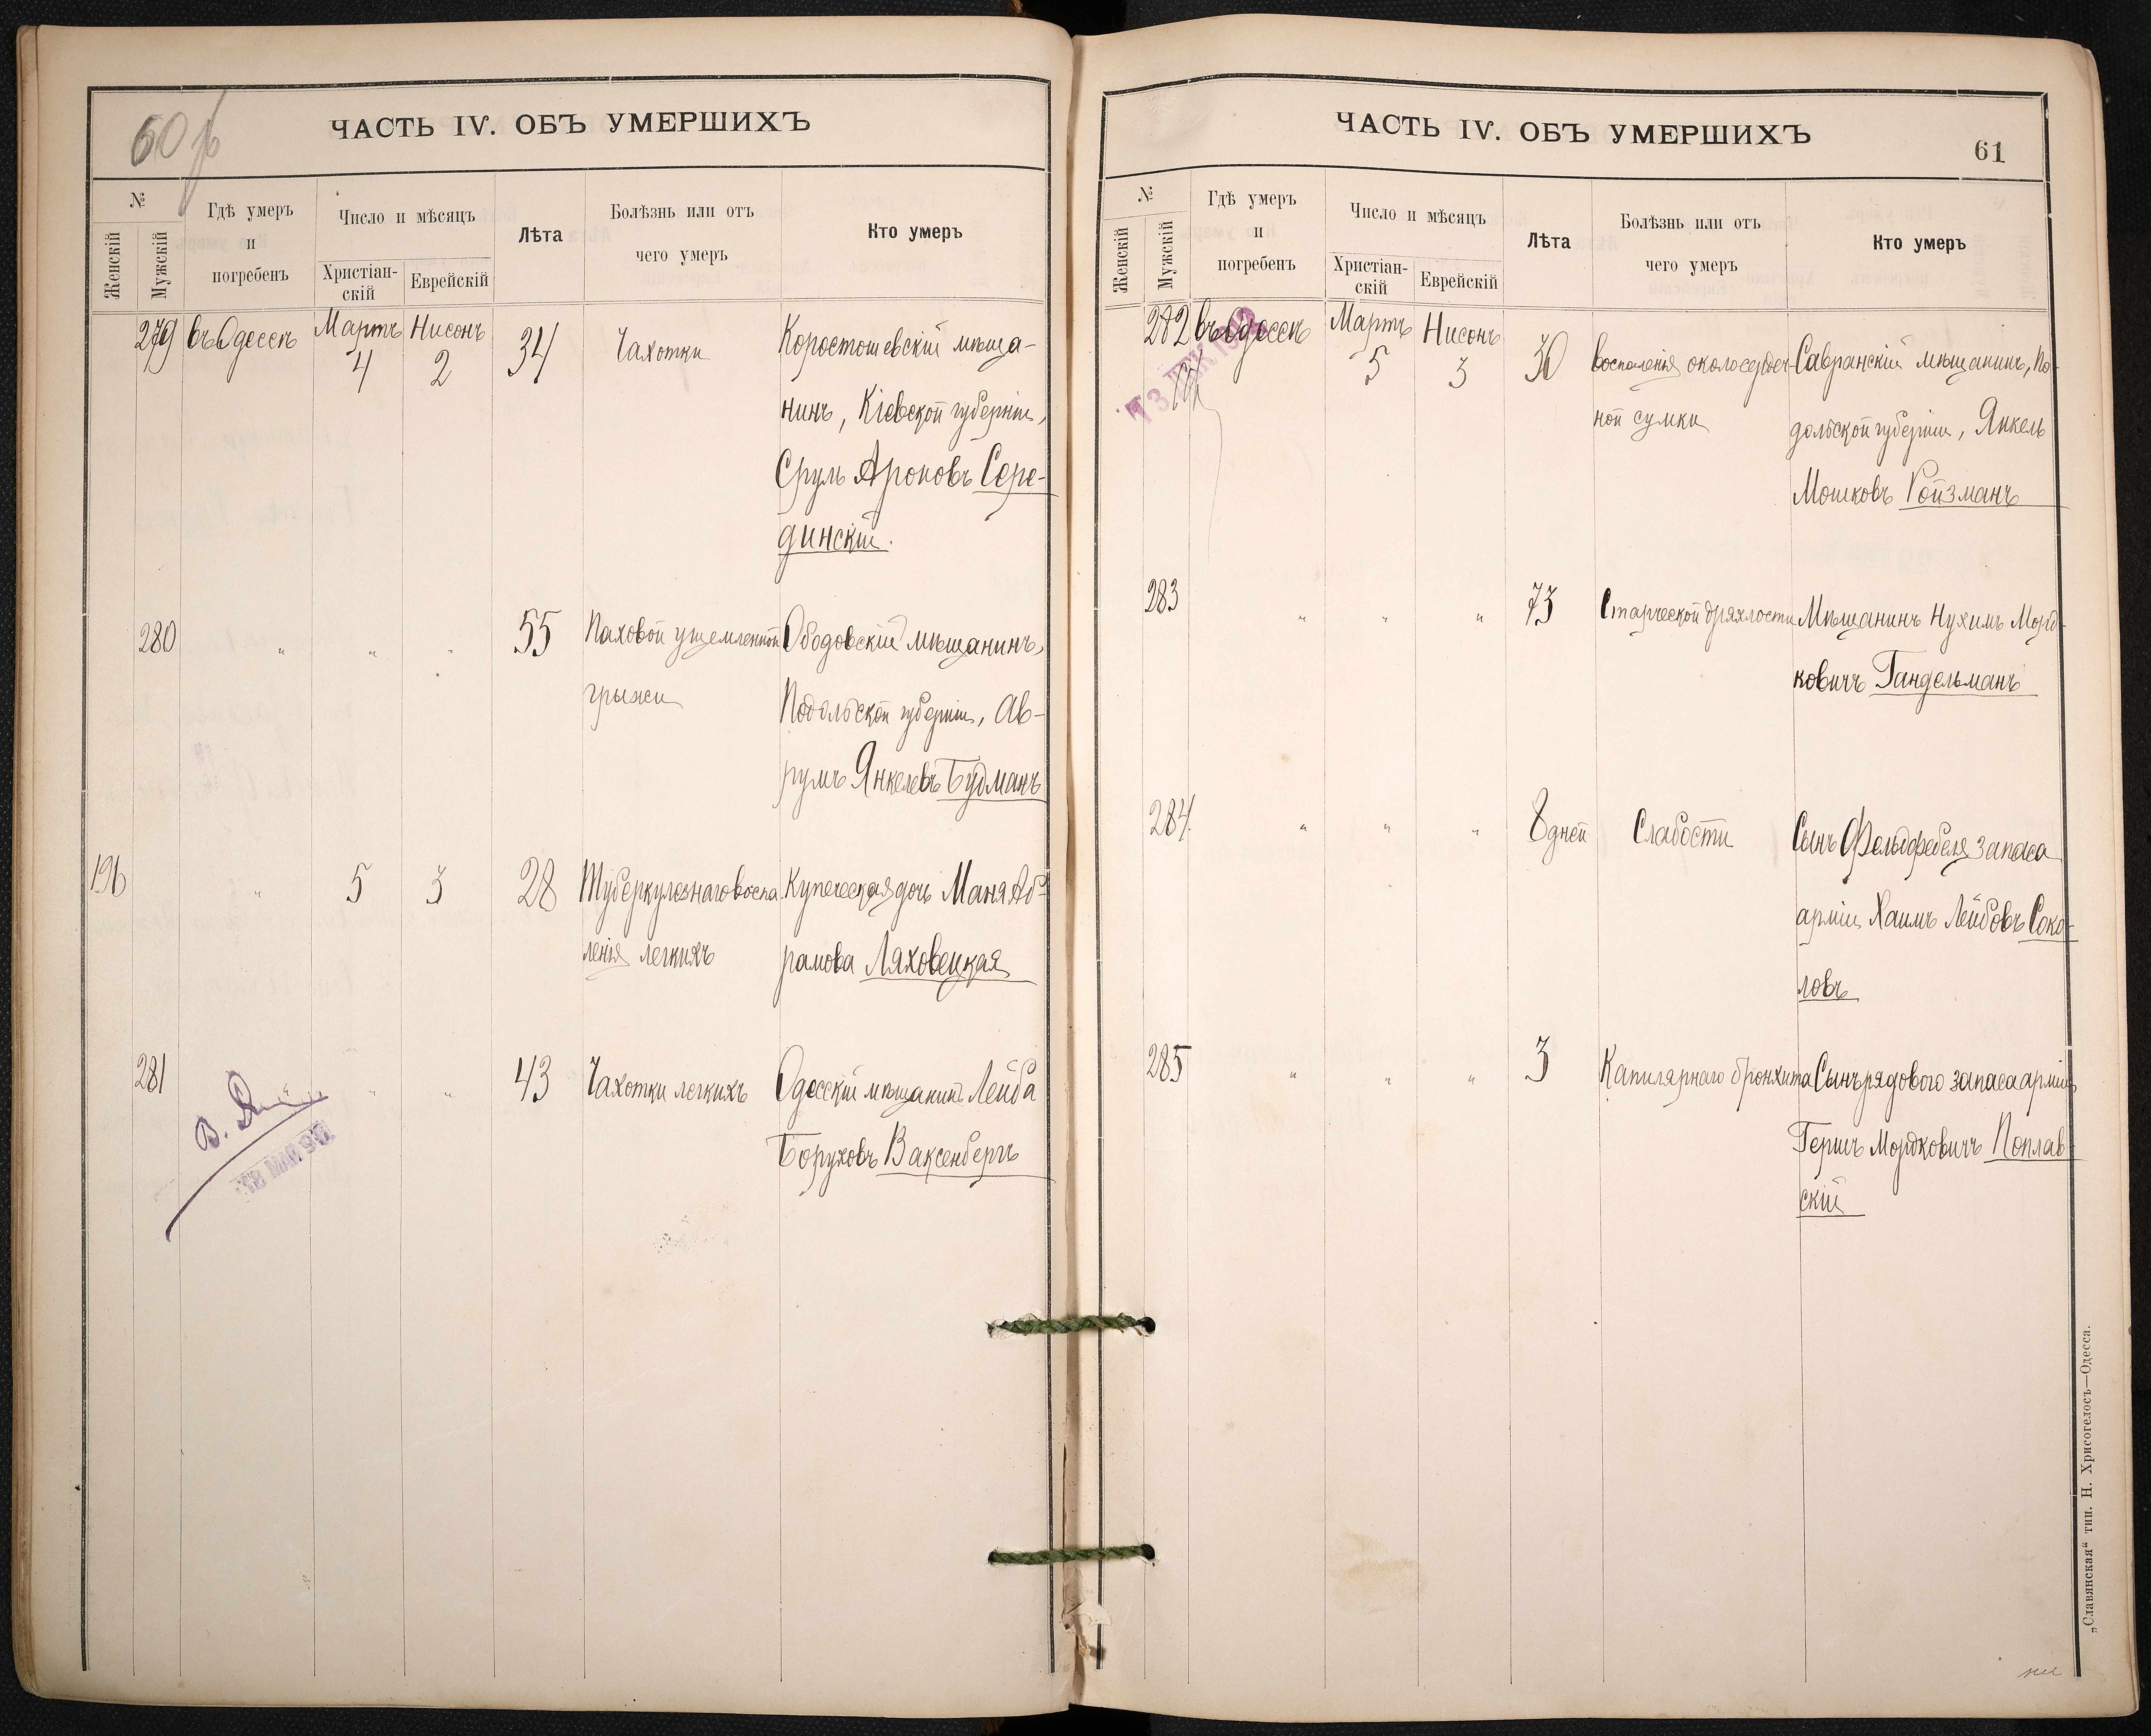 60 р
ЧАСТЬ IV. ОБЪ УМЕРШИХЪ
№
Женскій
Мужскій
Гдѣ умеръ
и
погребенъ
Число и мѣсяцъ
Христіан-
скій
Еврейскій
Лѣта
Болѣзнь или отъ
чего умеръ
Кто умеръ
279 въ Одессѣ Мартъ Нисонъ 34 Чахотки Коростошевскій мѣща-
4 2
нинъ, Кіевской губерніи,
Сруль Ароновъ Сере-
динскій.
280 " " " 55 Паховой ущемленной Ободовскій мѣщанинъ,
грыжи Подольской губерніи, Ав-
румъ Янкелевъ Будманъ
196 " 5 3 28 Туберкулезнаго воспа- Купеческая дочь Маня Аб-
ленія легкихъ рамова Ляховецкая
281 " " " 43 Чахотки легкихъ Одесскій мѣщанинъ Лейба
Боруховъ Ваксенбергъ
В.
МАЙ
ЧАСТЬ IV. ОБЪ УМЕРШИХЪ
61
№
Женскій
Мужскій
Гдѣ умеръ
и
погребенъ
Число и мѣсяцъ
Христіан-
скій
Еврейскій
Лѣта
Болѣзнь или отъ
чего умеръ
Кто умеръ
282 въ Одессѣ Мартъ Нисонъ 30 Воспаленія околосердеч- Савранскій мѣщанинъ, По-
5 3
ной сумки дольской губерніи, Янкель
Мошковъ Ройзманъ
283 " " " 73 Старческой дряхлости Мѣщанинъ Нухимъ Морд-
ковичъ Гандельманъ
284 " " " 8 дней Слабости Сынъ Фельдфебеля запаса
арміи Хаимъ Лейбовъ Соко-
ловъ
285 " " " 3 Капилярнаго бронхита Сынъ рядового запаса арміи
Гершъ Мордковичъ Поплав-
скій
„Славянская“ тип. Н. Хрисогелосъ—Одесса.